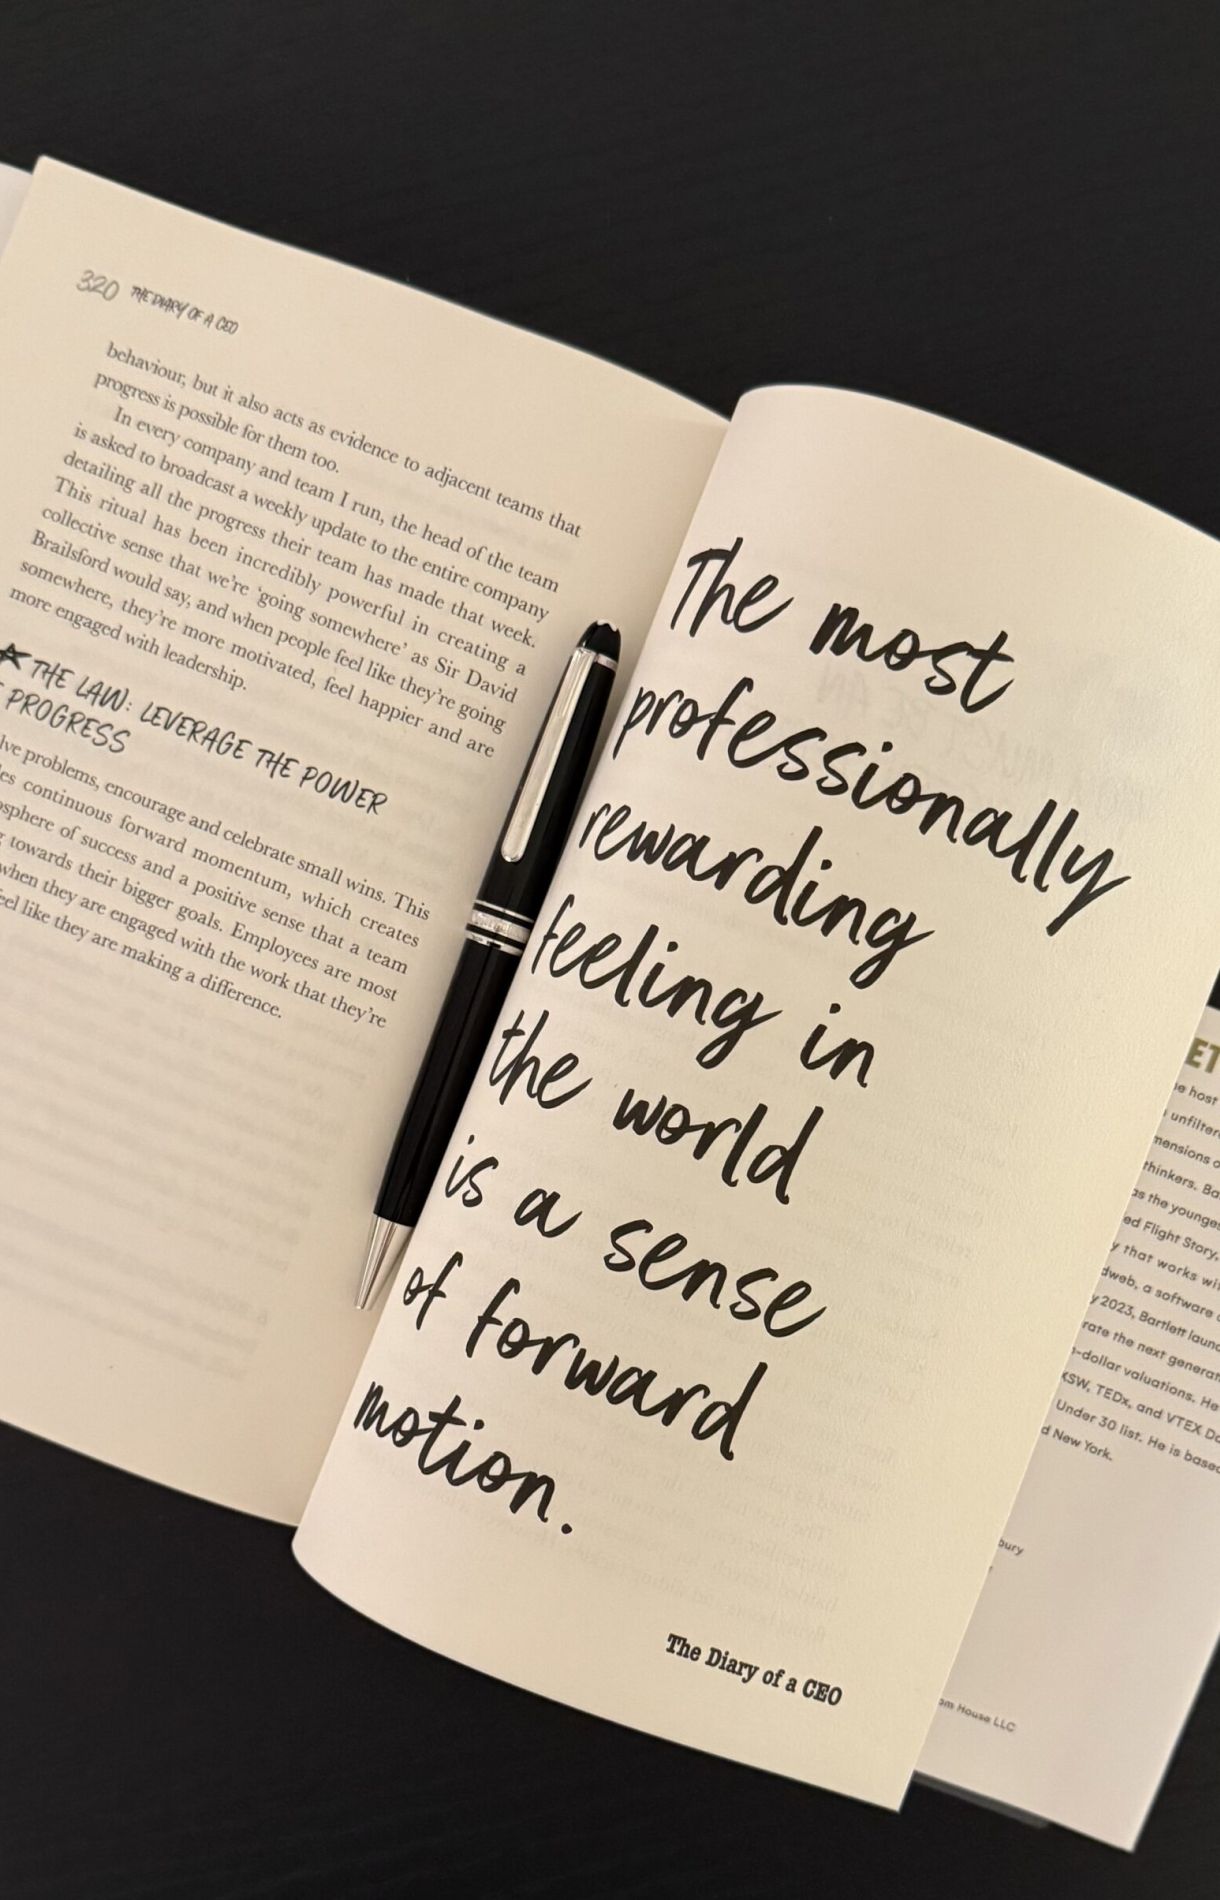 320 THE DIARY OF A CEO
behaviour, but it also acts as evidence to adjacent teams that
progress is possible for them too.
In every company and team I run, the head of the team
is asked to broadcast a weekly update to the entire company
detailing all the progress their team has made that week.
This ritual has been incredibly powerful in creating a
collective sense that we're 'going somewhere' as Sir David
Brailsford would say, and when people feel like they're going
somewhere, they're more motivated, feel happier and are
more engaged with leadership.
THE LAW: LEVERAGE THE POWER
PROGRESS
problems, encourage and celebrate small wins. This
continuous forward momentum, which creates
of success and a positive sense that a team
towards their bigger goals. Employees are most
when they are engaged with the work that they're
feel like they are making a difference.
The most
professionally
rewarding
feeling in
the world
is a sense
of forward
motion.
The Diary of a CEO
ET
host
unfiltere
mensions o
thinkers. Ba
as the younges
ed Flight Story,
y that works wi
dweb, a software
y 2023, Bartlett laun
rate the next generat
-dollar valuations. He
XSW, TEDx, and VTEX Da
Under 30 list. He is base
d New York.
bury
om House LLC